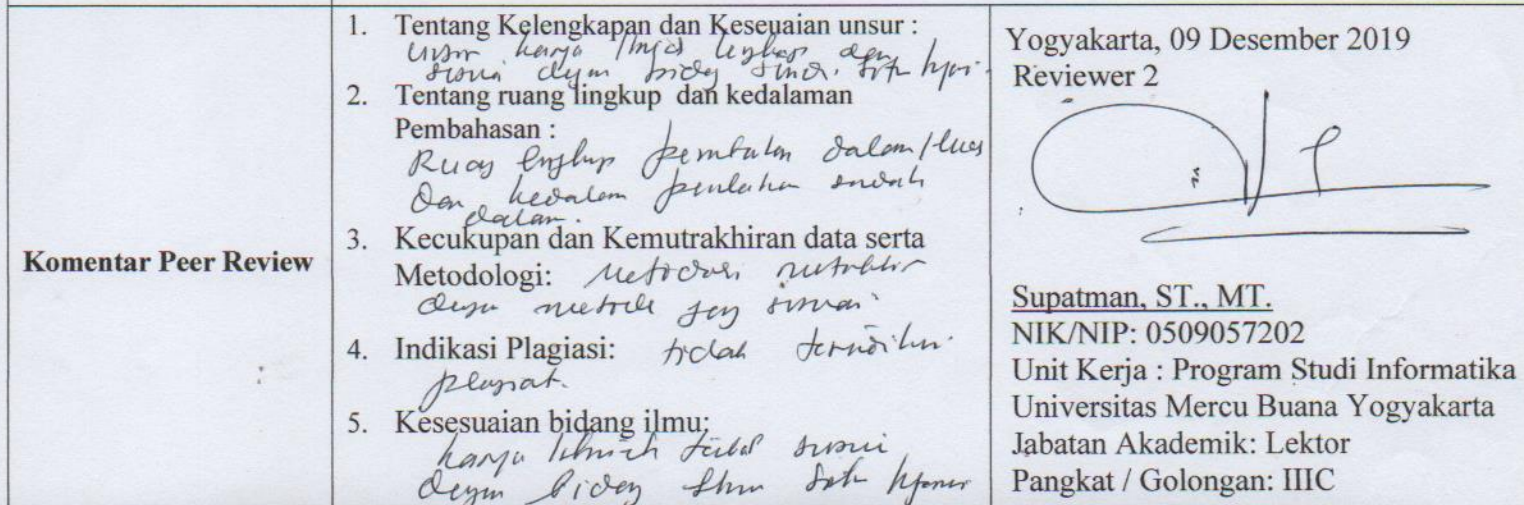 Komentar Peer Review
1. Tentang Kelengkapan dan Keseuaian unsur :
unsur karya lengkap dan
sesuai dengan bidang
2. Tentang ruang lingkup dan kedalaman
Pembahasan :
Ruang lingkup dalam/luas
dan sudah
dalam.
3. Kecukupan dan Kemutrakhiran data serta
Metodologi:
metode sesuai
4. Indikasi Plagiasi: tidak
plagiat.
5. Kesesuaian bidang ilmu:
karya ilmiah sesuai
dengan bidang ilmu
Yogyakarta, 09 Desember 2019
Reviewer 2
Supatman, ST., MT.
NIK/NIP: 0509057202
Unit Kerja : Program Studi Informatika
Universitas Mercu Buana Yogyakarta
Jabatan Akademik: Lektor
Pangkat / Golongan: IIIC